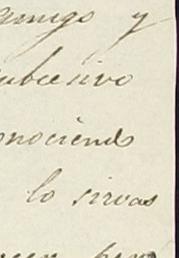 amigo y
subcesivo
onociendo
lo sirvas